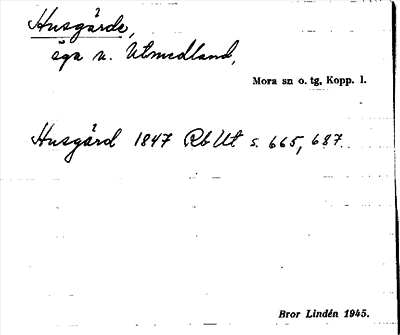 Husgårde,
äga v. Utmedland,
Mora sn o. tg, Kopp. l.
Husgård 1847 Rb Ut s. 665, 687.
Bror Lindén 1945.